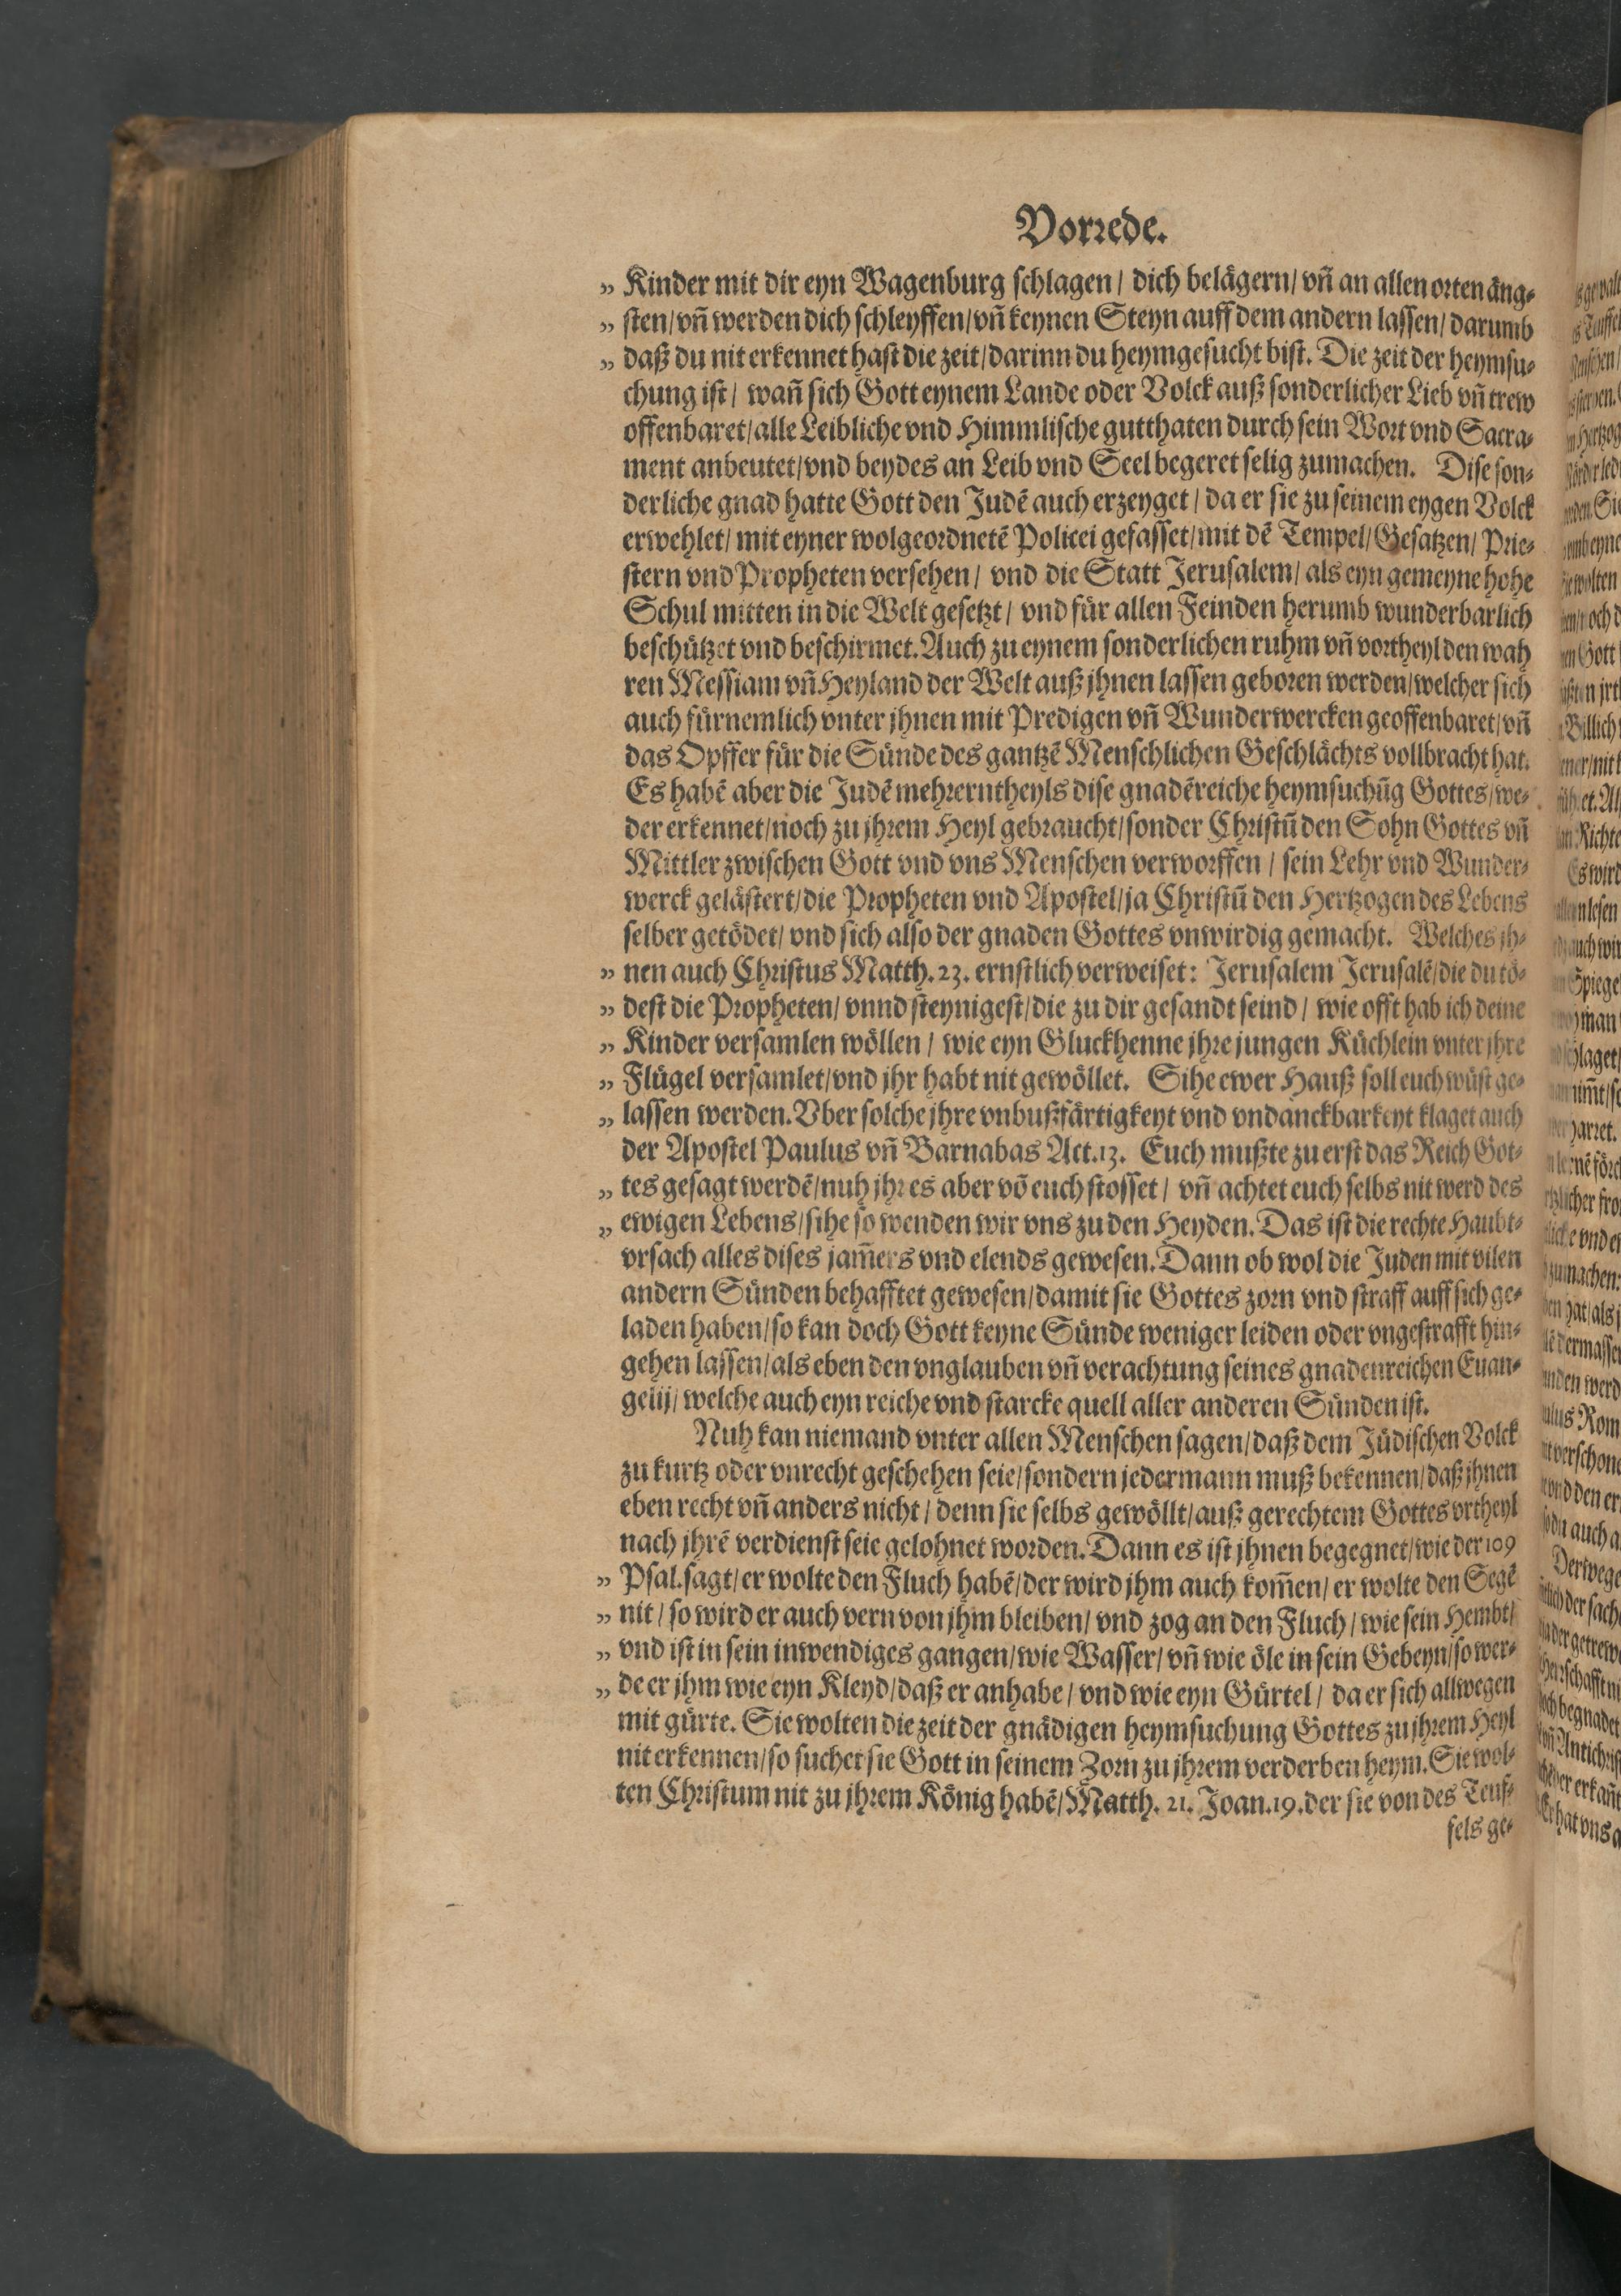 Vorrede.
„ Kinder mit dir eyn Wagenburg schlagen / dich belägern / vñ an allen orten äng-
„ sten / vñ werden dich schleyffen / vñ keynen Steyn auff dem andern lassen / darumb
„ daß du nit erkennet hast die zeit / darinn du heymgesucht bist. Die zeit der heymsu-
chung ist / wañ sich Gott eynem Lande oder Volck auß sonderlicher Lieb vñ trew
offenbaret / alle Leibliche vnd Himmlische gutthaten durch sein Wort vnd Sacra-
ment anbeutet / vnd beydes an Leib vnd Seel begeret selig zumachen. Dise son-
derliche gnad hatte Gott den Judē auch erzeyget / da er sie zu seinem eygen Volck
erwehlet / mit eyner wolgeordnetē Policei gefasset / mit dē Tempel / Gesatzen / Prie-
stern vnd Propheten versehen / vnd die Statt Jerusalem / als eyn gemeyne hohe
Schul mitten in die Welt gesetzt / vnd für allen Feinden herumb wunderbarlich
beschützet vnd beschirmet. Auch zu eynem sonderlichen ruhm vñ vortheyl den wah
ren Messiam vñ Heyland der Welt auß jhnen lassen geboren werden / welcher sich
auch fürnemlich vnter jhnen mit Predigen vñ Wunderwercken geoffenbaret / vñ
das Opffer für die Sünde des gantzē Menschlichen Geschlächts vollbracht hat.
Es habē aber die Judē mehrerntheyls dise gnadēreiche heymsuchūg Gottes / we-
der erkennet / noch zu jhrem Heyl gebraucht / sonder Christū den Sohn Gottes vñ
Mittler zwischen Gott vnd vns Menschen verworffen / sein Lehr vnd Wunder-
werck gelästert / die Propheten vnd Apostel / ja Christū den Hertzogen des Lebens
selber getödet / vnd sich also der gnaden Gottes vnwirdig gemacht. Welches jh-
„ nen auch Christus Matth. 23. ernstlich verweiset: Jerusalem Jerusalē / die du tö-
„ dest die Propheten / vnnd steynigest / die zu dir gesandt seind / wie offt hab ich deine
„ Kinder versamlen wöllen / wie eyn Gluckhenne jhre jungen Küchlein vnter jhre
„ Flügel versamlet / vnd jhr habt nit gewöllet. Sihe ewer Hauß soll euch wüst ge-
„ lassen werden. Vber solche jhre vnbußfärtigkeyt vnd vndanckbarkeyt klaget auch
der Apostel Paulus vñ Barnabas Act. 13. Euch mußte zu erst das Reich Got-
„ tes gesagt werdē / nuh jhr es aber vō euch stosset / vñ achtet euch selbs nit werd des
„ ewigen Lebens / sihe so wenden wir vns zu den Heyden. Das ist die rechte Haubt-
vrsach alles dises jam̄ers vnd elends gewesen. Dann ob wol die Juden mit vilen
andern Sünden behafftet gewesen / damit sie Gottes zorn vnd straff auff sich ge-
laden haben / so kan doch Gott keyne Sünde weniger leiden oder vngestrafft hin-
gehen lassen / als eben den vnglauben vñ verachtung seines gnadenreichen Euan-
gelij / welche auch eyn reiche vnd starcke quell aller anderen Sünden ist.
Nuh kan niemand vnter allen Menschen sagen / daß dem Jüdischen Volck
zu kurtz oder vnrecht geschehen seie / sondern jedermann muß bekennen / daß jhnen
eben recht vñ anders nicht / denn sie selbs gewöllt / auß gerechtem Gottes vrtheyl
nach jhrē verdienst seie gelohnet worden. Dann es ist jhnen begegnet / wie der 109
„ Psal. sagt / er wolte den Fluch habē / der wird jhm auch kom̄en / er wolte den Segē
„ nit / so wird er auch vern von jhm bleiben / vnd zog an den Fluch / wie sein Hembt /
„ vnd ist in sein inwendiges gangen / wie Wasser / vñ wie öle in sein Gebeyn / so wer-
„ de er jhm wie eyn Kleyd / daß er anhabe / vnd wie eyn Gürtel / da er sich allwegen
mit gürte. Sie wolten die zeit der gnädigen heymsuchung Gottes zu jhrem Heyl
nit erkennen / so suchet sie Gott in seinem Zorn zu jhrem verderben heym. Sie wol-
ten Christum nit zu jhrem König habē / Matth. 21. Joan. 19. der sie von des Teuf-
fels ge-